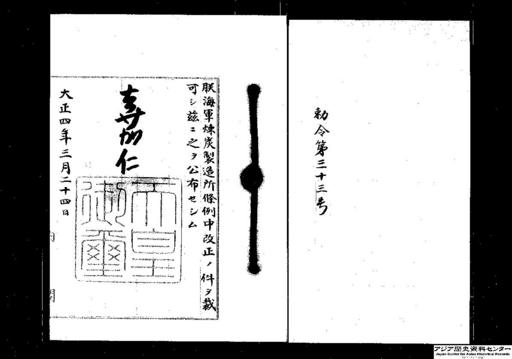 勅令第三十三号
朕海軍煉炭製造所條例中改正ノ件ヲ裁
可シ玆ニ之ヲ公布セシム
嘉仁
天皇御璽
大正四年三月二十四日
内閣
アジア歴史資料センター
Japan Center for Asian Historical Records